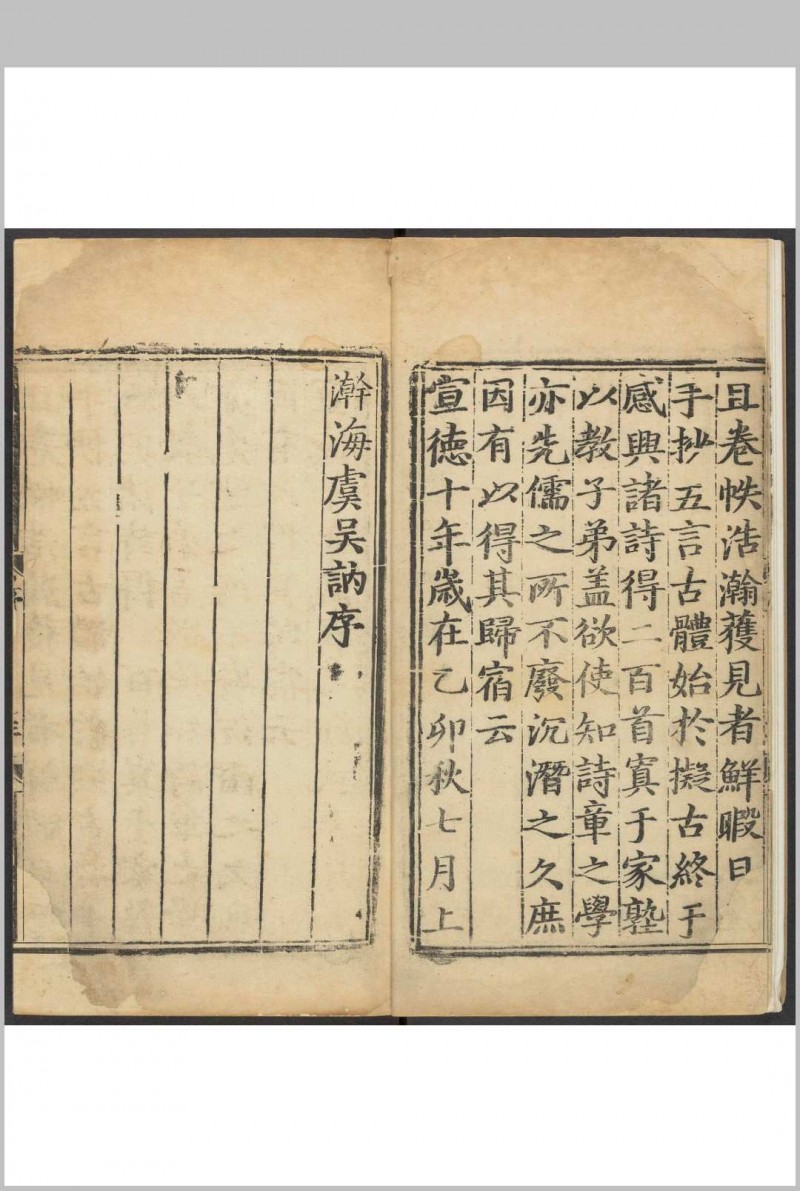 且卷帙浩瀚蒦見者鮮暇日
手抄五言古體始於擬古終于
感興諸詩得二百首寘于家塾
以教子弟盖欲使知詩章之學
亦先儒之所不廢沉潛之久庶
因有以得其歸宿云
宣德十年歲在乙卯秋七月上
澣海虞吴訥序
序